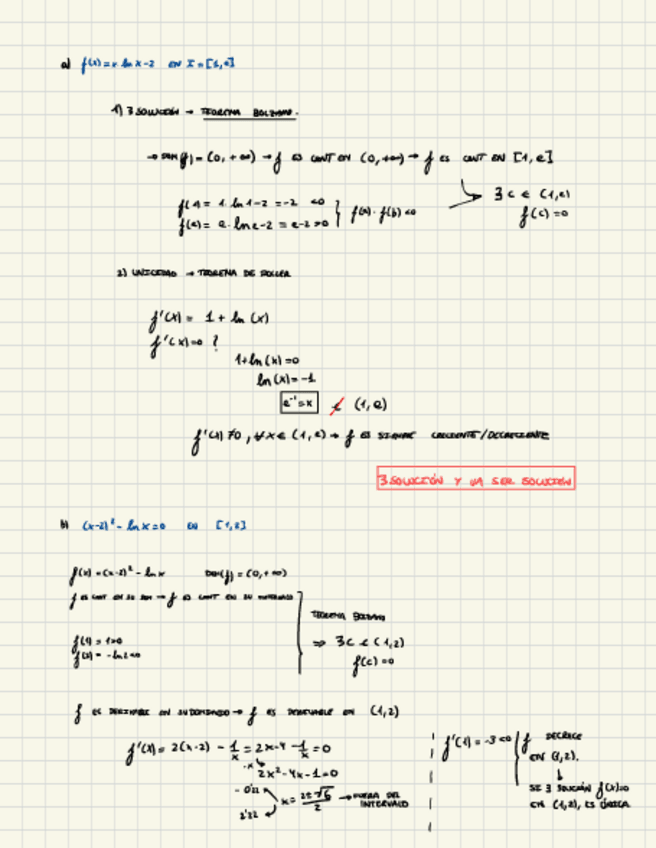 a) f(x)=x·lnx-2 EN I=[1,e]
1) ∃ SOLUCIÓN → TEOREMA BOLZANO.
→ DOM(f)=(0,+∞) → f ES CONT EN (0,+∞) → f ES CONT EN [1,e]
∃ c ∈ (1,e)
f(c)=0
f(1)= 1·ln1-2 =-2 <0
f(e)= e·lne-2 = e-2 >0 } f(a)·f(b)<0
2) UNICIDAD → TEOREMA DE ROLLE
f'(x)= 1+ln(x)
f'(x)=0 ?
1+ln(x)=0
ln(x)=-1
e⁻¹=x ∉ (1,e)
f'(x)≠0, ∀x∈(1,e) → f ES SIEMPRE CRECIENTE/DECRECIENTE
∃ SOLUCIÓN Y VA SER SOLUCIÓN
b) (x-2)²-lnx=0 EN [1,2]
f(x)=(x-2)²-lnx DOM(f)=(0,+∞)
f ES CONT EN SU DOM → f ES CONT EN SU INTERVALO
TEOREMA BOLZANO
f(1)=1>0
f(2)=-ln2<0
⇒ ∃c∈(1,2)
f(c)=0
f ES DERIVABLE EN SU DOMINIO → f ES DERIVABLE EN (1,2)
f'(x)=2(x-2)-1/x=2x-4-1/x=0
·x
2x²-4x-1=0
-0'22
x=(2±√6)/2 → FUERA DEL INTERVALO
2'22
f'(1)=-3<0
f DECRECE
EN (1,2).
↓
SI ∃ SOLUCIÓN f(x)=0
EN (1,2), ES ÚNICA